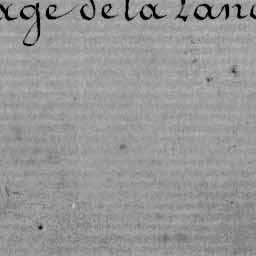 age de la Lan